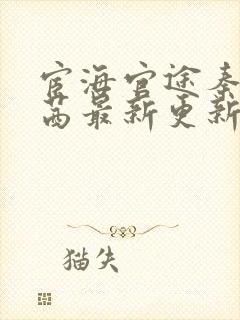 宦海官途秦
茜最新更新
猫失